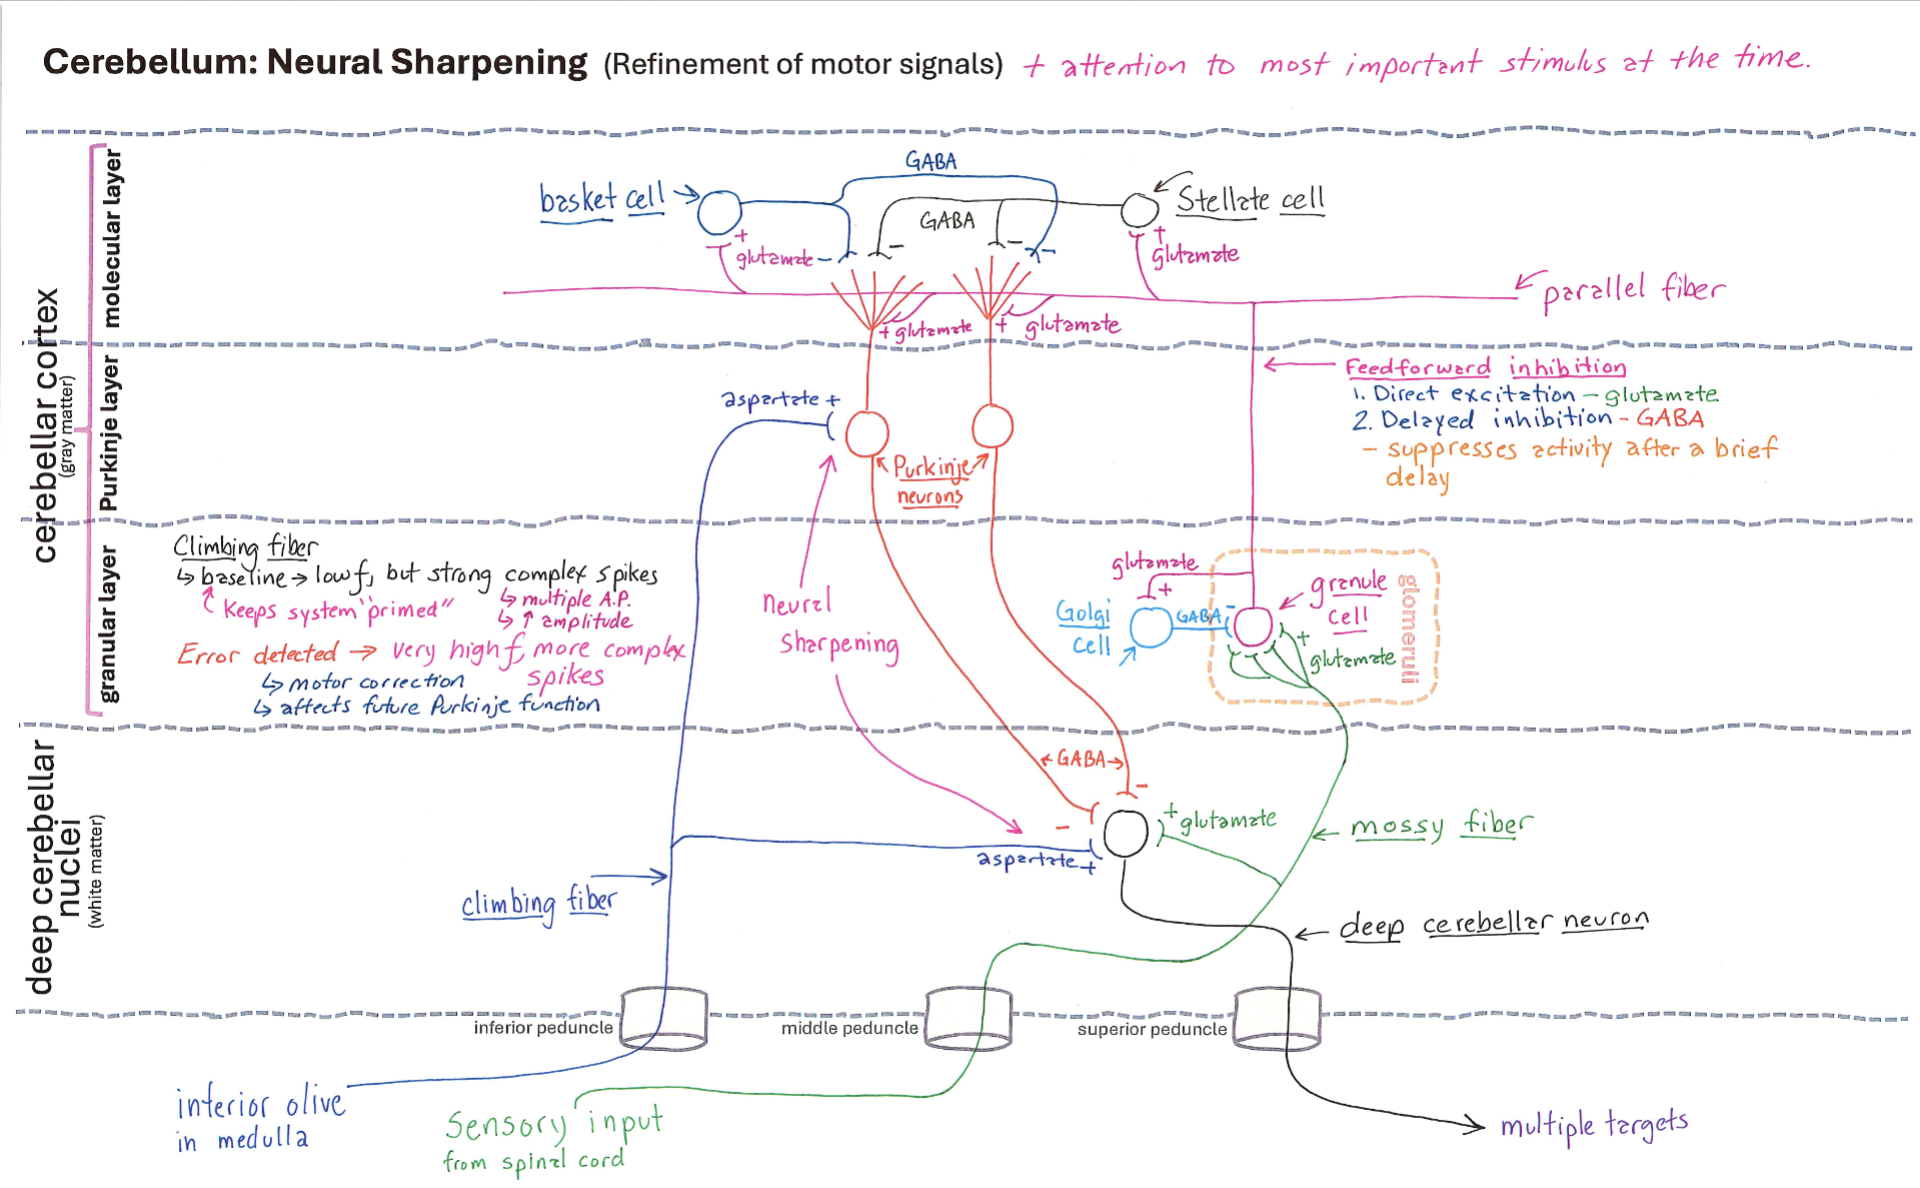 Cerebellum: Neural Sharpening (Refinement of motor signals) + attention to most important stimulus at the time.
cerebellar cortex
(gray matter)
molecular layer
Purkinje layer
granular layer
deep cerebellar
nuclei
(white matter)
GABA
basket cell
Stellate cell
GABA
+
glutamate
-
-
-
-
+
glutamate
parallel fiber
+ glutamate
+ glutamate
Feedforward inhibition
1. Direct excitation - glutamate
2. Delayed inhibition - GABA
- suppresses activity after a brief
delay
aspartate +
Purkinje
neurons
Climbing fiber
↳ baseline → low f, but strong complex spikes
Keeps system "primed"
↳ multiple A.P.
↳ ↑ amplitude
Error detected → very high f, more complex
spikes
↳ motor correction
↳ affects future Purkinje function
Neural
Sharpening
glutamate
+
Golgi
cell
GABA
-
granule
cell
+
glutamate
glomeruli
←GABA→
-
-
+
glutamate
aspartate +
mossy fiber
climbing fiber
deep cerebellar neuron
inferior peduncle
middle peduncle
superior peduncle
inferior olive
in medulla
Sensory input
from spinal cord
multiple targets